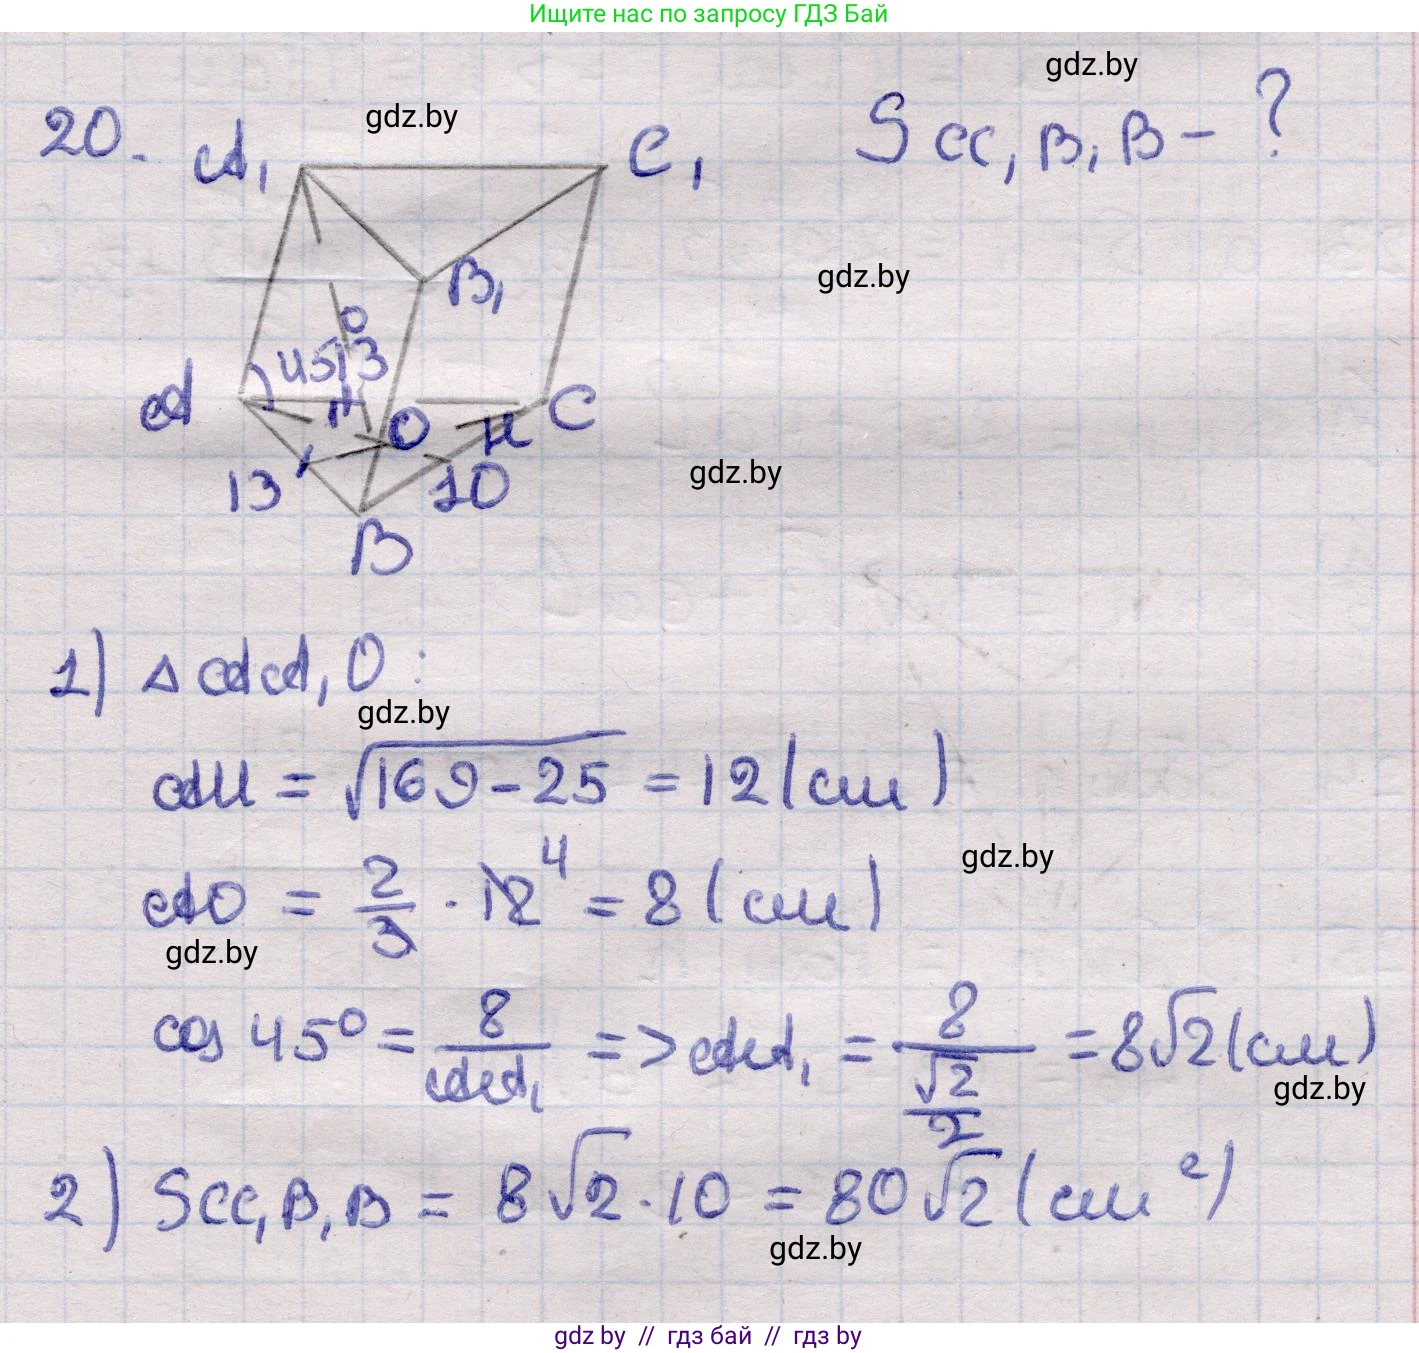 Ищите нас по запросу ГДЗ Бай
gdz.by
gdz.by
20. A₁ C₁ S CC₁B₁B - ?
B₁
gdz.by
45° 13
A C
O H
13 10
gdz.by
B
1) △ AA₁O :
gdz.by
AH = √169-25 = 12 (см)
gdz.by
AO = 2/3 · 12 4 = 8 (см)
gdz.by
cos 45° = 8/AA₁ => AA₁ = 8/(√2/2) = 8√2 (см)
gdz.by
2) Scc₁B₁B = 8√2 · 10 = 80√2 (см²)
gdz.by
gdz by // гдз бай // гдз by